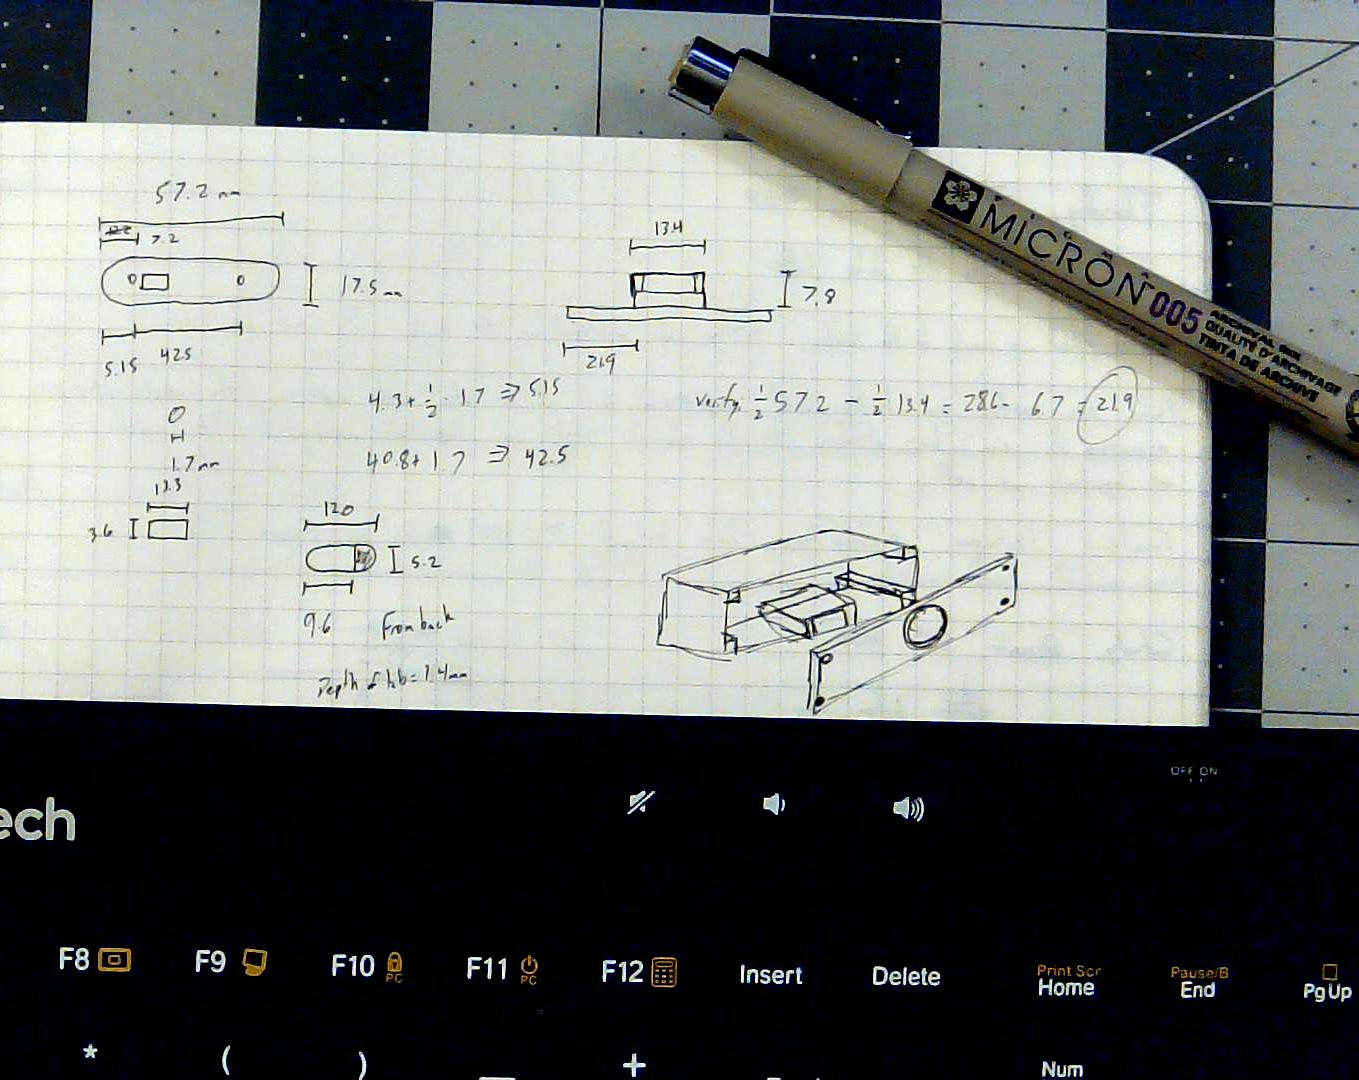 57.2 mm
7.2
17.5 mm
5.15
42.5
13.4
7.8
21.9
4.3 + 1/2 · 1.7 ⇒ 5.15
verify: 1/2 57.2 - 1/2 13.4 = 28.6 - 6.7 = 21.9
40.8 + 1.7 ⇒ 42.5
1.7 mm
13.3
3.6
12.0
5.2
9.6 From back
Depth of hb = 1.4mm
MICRON 005
ARCHIVAL INK
QUALITE D'ARCHIVAGE
TINTA DE ARCHIVE
OFF ON
ech
F8 F9 F10 PC F11 PC F12 Insert Delete Print Scr Home Pause/B End PgUp
* ( ) + Num